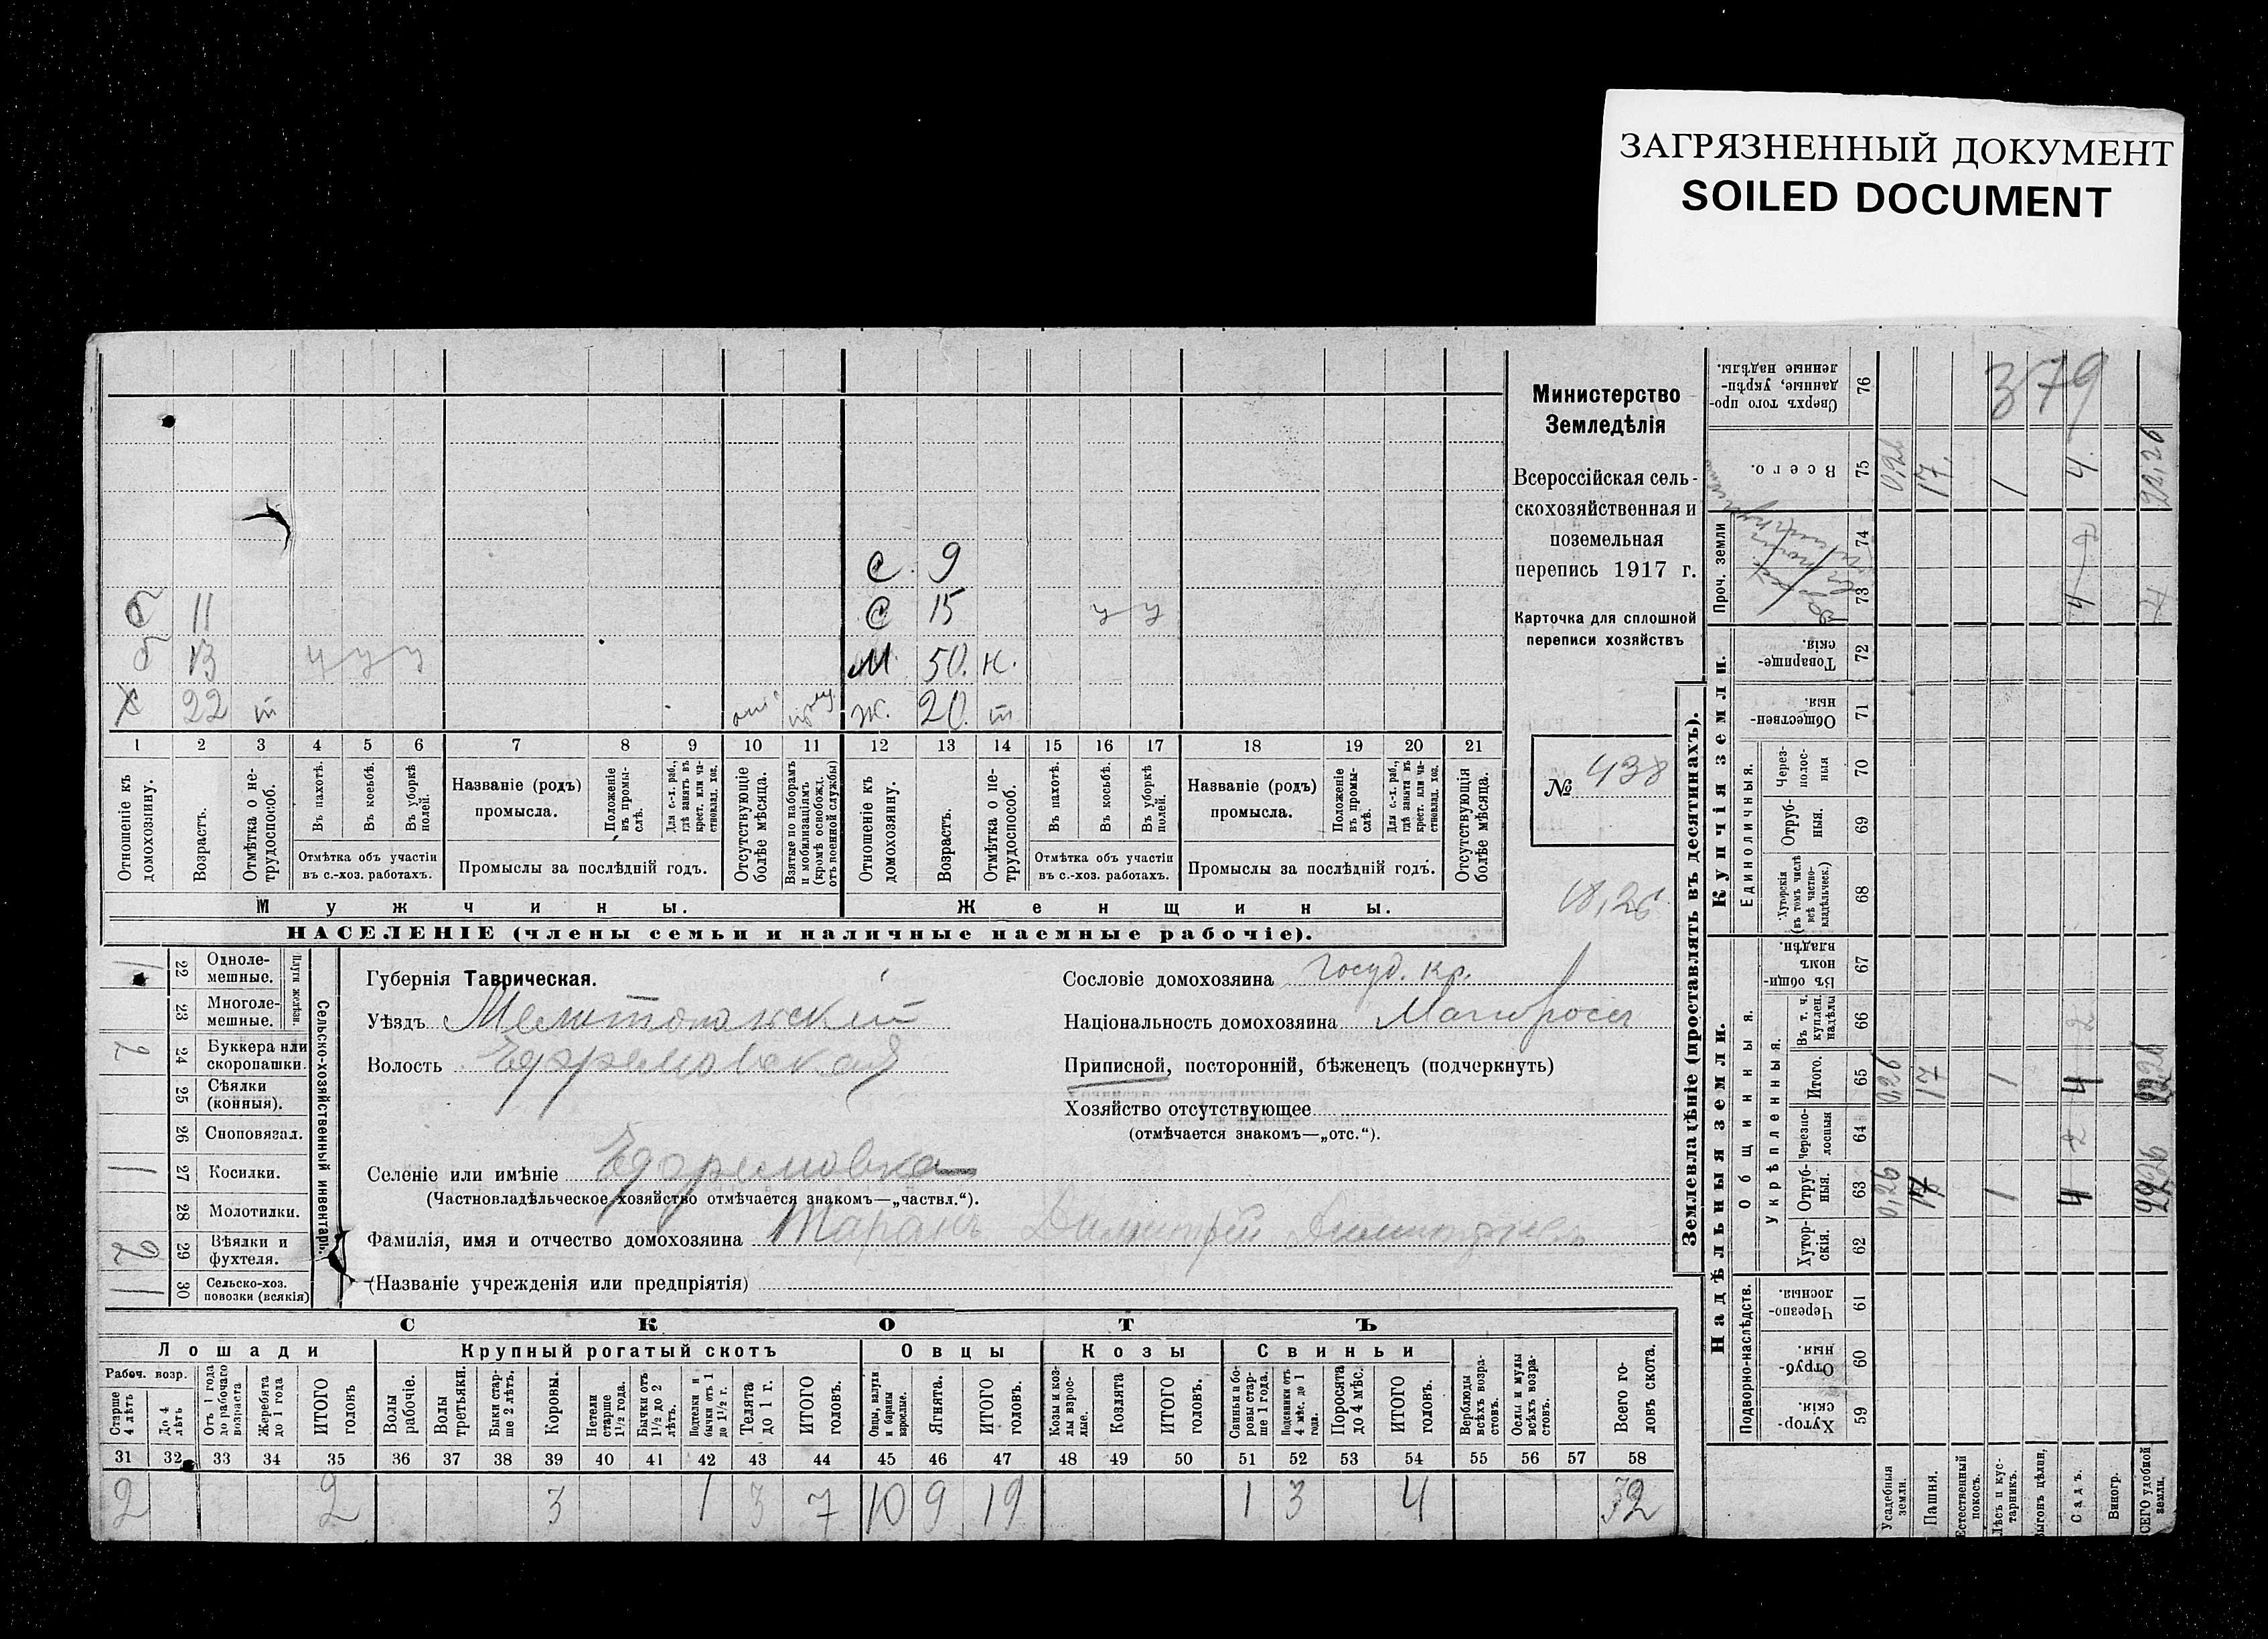 ЗАГРЯЗНЕННЫЙ ДОКУМЕНТ
SOILED DOCUMENT
Министерство
Земледѣлія
Всероссійская сель-
скохозяйственная и
поземельная
перепись 1917 г.
Карточка для сплошной
переписи хозяйствъ
№ 438
18,26
с 9
б 11 с 15 у у
б 13 ч у у м. 50. н.
с 22 п ж. 20. п
1 2 3 4 5 6 7 8 9 10 11 12 13 14 15 16 17 18 19 20 21
Отношеніе къ домохозяину.
Возрастъ.
Отмѣтка о не-трудоспособ.
Въ пахотѣ.
Въ косьбѣ.
Въ уборкѣ полей.
Отмѣтка объ участіи
въ с.-хоз. работахъ.
Названіе (родъ)
промысла.
Положеніе въ промы-слѣ.
Для с.-х. раб., гдѣ занятъ въ крест. или ча-стновлад. хоз.
Промыслы за послѣдній годъ.
Отсутствующіе болѣе мѣсяца.
Взятые по наборамъ и мобилизаціямъ (кромѣ освобожд. отъ военной службы)
Отношеніе къ домохозяину.
Возрастъ.
Отмѣтка о не-трудоспособ.
Въ пахотѣ.
Въ косьбѣ.
Въ уборкѣ полей.
Отмѣтка объ участіи
въ с.-хоз. работахъ.
Названіе (родъ)
промысла.
Положеніе въ промы-слѣ.
Для с.-х. раб., гдѣ заняти въ крест. или ча-стновлад. хоз.
Промыслы за послѣдній годъ.
Отсутствующія болѣе мѣсяца.
Мужчины. Женщины.
НАСЕЛЕНІЕ (члены семьи и наличные наемные рабочіе).
Сельско-хозяйственный инвентарь.
Плуги желѣзн.
1 22 Одноле-мешные.
23 Многоле-мешные.
2 24 Буккера или скоропашки.
25 Сѣялки (конныя).
26 Сноповязал.
1 27 Косилки.
28 Молотилки.
2 29 Вѣялки и фухтеля.
1 30 Сельско-хоз. повозки (всякія)
Губернія Таврическая.
Уѣздъ Мелитопольскій
Волость Ефремовская
Селеніе или имѣніе Ефремовка
(Частновладѣльческое хозяйство отмѣчается знакомъ—„частвл.“).
Фамилія, имя и отчество домохозяина Таранъ Димитрій Димитріевъ
(Названіе учрежденія или предпріятія)
Сословіе домохозяина госуд. кр.
Національность домохозяина Малоросъ
Приписной, посторонній, бѣженецъ (подчеркнуть)
Хозяйство отсутствующее
(отмѣчается знакомъ—„отс.“).
СКОТЪ
Лошади Крупный рогатый скотъ Овцы Козы Свиньи
Рабоч. возр.
Старше 4 лѣтъ
До 4 лѣтъ
Отъ 1 года до рабочаго возраста
Жеребята до 1 года
ИТОГО головъ
Волы рабочіе.
Волы третьяки.
Быки стар-ше 2 лѣтъ.
Коровы.
Нетели старше 1½ года.
Бычки отъ 1½ до 2 лѣтъ.
Подтелки и бычки отъ 1 до 1½ г.
Телята до 1 г.
ИТОГО головъ.
Овцы, валухи и бараны взрослые.
Ягнята.
ИТОГО головъ.
Козы и коз-лы взрос-лые.
Козлята
ИТОГО головъ.
Свиньи и бо-ровы стар-ше 1 года.
Подсвинки отъ 4 мѣс. до 1 года.
Поросята до 4 мѣс.
ИТОГО головъ.
Верблюды всѣхъ возра-стовъ.
Ослы и мулы всѣхъ возра-стовъ.
Всего го-ловъ скота.
31 32 33 34 35 36 37 38 39 40 41 42 43 44 45 46 47 48 49 50 51 52 53 54 55 56 57 58
2 2 3 1 3 7 10 9 19 1 3 4 32
Землевладѣніе (проставлять въ десятинахъ).
379
Сверхъ того про-данные, укрѣп-ленные надѣлы. 76
Всего. 75 0,26 17. 1 4. 22,26
Проч. земли 74 73
Купчія земли.
Товарище-скія 72
Обществен-ныя. 71
Единоличныя.
Через-полос-ныя 70
Отруб-ныя. 69
Хуторскія (въ томъ числѣ всѣ частно-владѣльческ.) 68
Надѣльныя земли.
Общинныя.
Въ общин-номъ владѣн. 67
Укрѣпленныя.
Въ т. ч. куплен. надѣлы 66
Итого. 65 0,26 17 1 4
Черезпо-лосныя 64
Отруб-ныя. 63 0,26 17 1 4
Хутор-скія. 62
Подворно-наслѣдств.
Черезпо-лосныя. 61
Отруб-ныя. 60
Хутор-скія. 59
Усадебныя земли.
Пашня.
Естественный покосъ.
Лѣсъ и кус-тарникъ.
Выгонъ цѣлин.
Садъ.
Виногр.
ВСЕГО удобной земли.